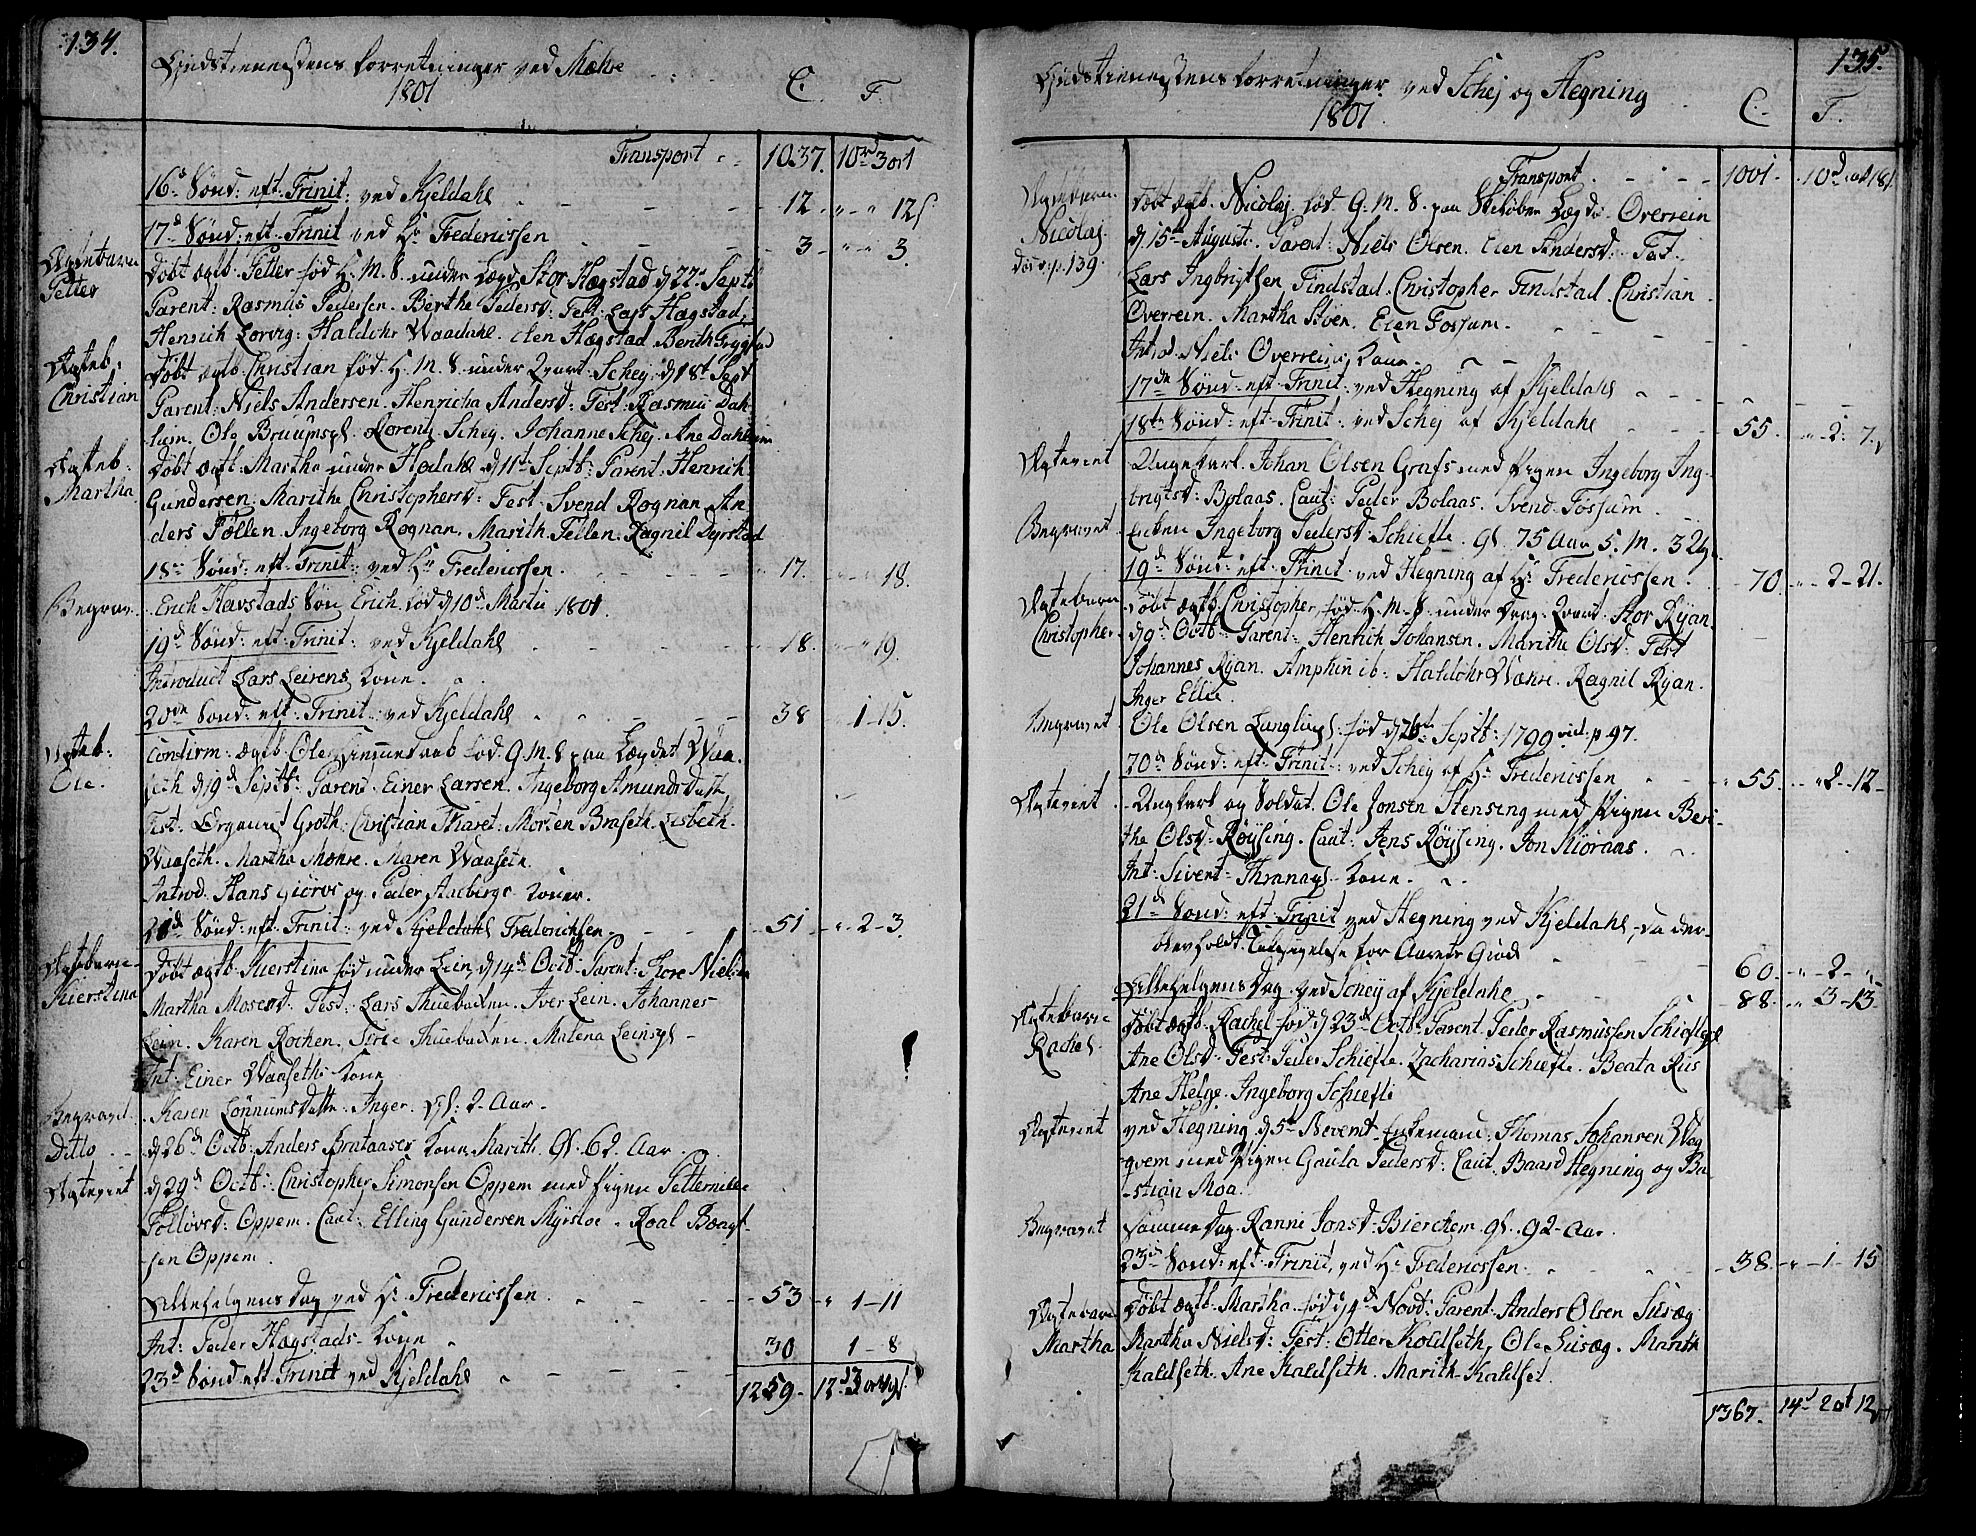 134.
Gudstienestens forretninger ved Mæhre
1801
C. F.
Transport 1037. 10rd 3ort
16d Sønd: eft: Trinit: ved Kjeldahl 12. 12s
17d Sønd: eft: Trinit ved Hr Fredericssen 3 3.
Ægtebarn Petter
Døbt ægtb. Petter fød H. M. S. under Lægd Stor Hægstad d 22d Septb
Parent: Rasmus Pedersen. Berthe Pedersd: Test: Lars Hægstad,
Henrich Lorvig. Haldohr Waadahl. Elen Hægstad Berith Trygstad
Ægteb: Christian
Døbt ægtb. Christian fød H. M. S. under Qvart Schej d 18t Sept
Parent: Niels Andersen. Henricha Andersd: Test: Rasmus Dah-
liim. Ole Bruumspl. Lorentz Schej. Johanne Schej. Ane Dahliim
Ægteb: Martha
Døbt ægtb. Martha under Hodahl d 11t Septb: Parent. Henrich
Gundersen. Marithe Christophersd: Test: Svend Rognan. An
ders Føllen. Ingeborg Rognan. Marith Fellen. Ragnil Dyrstad
18de Sønd: eft: Trinit: ved Hr Fredericssen. 17. 18.
Begrav. Erich Havstads Søn Erich fød d 10d Martii 1801.
19d Sønd: eft: Trinit: ved Kjeldahl 18. 19.
Introduct Lars Leirens Kone.
20de Sønd: eft: Trinit: ved Kjeldahl 38 1-15.
Ægteb: Ole.
Confirm: ægtb. Ole hiemmedaab fød G. M. S. paa Lægdet Waa
seth d 19d Septb: Parent. Einer Larsen. Ingeborg Amundsdatt
Test: Ørgenus Groth. Christian Skaret. Morten Braseth. Lisbeth
Waaseth. Martha Mæhre. Maren Waaseth.
Introd. Hans Giørvs og Peder Aalbergs Koner.
21d Sønd: eft: Trinit: ved Kjeldahl Fredericksen. 51 2-3.
Ægtebarn Kierstina
Døbt ægtb. Kierstina fød under Lein d 14d Octb: Parent: Tore Nielsen
Martha Mosesd: Test: Lars Thuebacken. Iver Lein. Johannes
Lein. Karen Rochen. Siri Thuebacken. Malena Leinspl
Int: Einer Waaseths Kone
Begravet. Karen Lønnumsdatte. Inger. Gl: 2 Aar.
Ditto d 26d Octb: Anders Brataases Kone Marith. Gl. 62 Aar.
Ægteviet d 29d Octb: Christopher Simonsen Oppem med Pigen Petternille
Folløvsd: Oppem. Caut: Elling Gundersen Myrstoe. Roal Baagt
sen Oppem.
Allehelgens Dag ved Hr Fredericssen 53 1-11
Int: Peder Hægstads Kone 30 1-8
23d Sønd: eft: Trinit ved Kjeldahl
1259. 12
135.
Gudstienestens forretninger ved Schej og Hegning
1801.
C. F.
Transport 1001. 10rd
Ægtebarn Nicolaj. døer p. 139.
Døbt ægtb. Nicolaj. fød. G. M. S. paa Lægds. Overrein
d. 15de Augusti. Parent: Niels Olsen. Elen Andersd: Test:
Lars Ingbrigtsen Findstad. Christopher Findstad. Christian
Overrein. Martha Støer. Elen Fossum.
Introd. Niels Overreins Kone.
17de Sønd: eft: Trinit: ved Hegning af Kjeldahl
18de Sønd: eft: Trinit: ved Schej af Kjeldahl 55. 2: 7.
Ægteviet Ungekarl Johan Olsen Grafs med Pigen Ingeborg Ing-
brigtsd: Bolaas. Caut: Peder Bolaas. Svend Fossum.
Begravet Encken Ingeborg Pedersd: Schiefte. Gl. 75 Aar 5. M. 3 Ug.
19d Sønd: eft: Trinit: ved Hegning af Hr Fredericssen. 70. 2-21.
Ægtebarn Christopher
Døbt ægtb. Christopher, fød. H. M. S. under Qvart. Stor Ryan.
d 9d Octb: Parent: Henrich Johansen. Marithe Olsd: Test
Johannes Ryan. Haldohr Wæhre. Ragnil Ryan.
Inger Ellie.
Begravet Ole Olsen Lunglispl: fød d 26t Septb: 1799 vid: p 97.
20d Sønd: eft: Trinit: ved Schej af Hr Fredericssen 55. 2-12-
Ægteviet Ungkarl og Soldat. Ole Jonsen Stensing med Pigen Beri-
the Olsd: Røysing. Caut: Jens Røysing. Jon Kioraas.
Int: Sivert Thranapl. Kone.
21d Sønd: eft: Trinit ved Hegning ved Kjeldahl, da der
blev holdt Taksigelse for Aarets Grøde 60. 2-
Allehelgens Dag ved Schej af Kjeldahl 88. 3-13.
Ægtebarn Rachel.
Døbt ægtb. Rachel fød d 23d Octb: Parent. Peder Rasmussen Schieftepl
Ane Olsd: Test: Peder Schiefte. Zacharias Schiefte. Beata Riis
Ane Helge. Ingeborg Schiefte
Ægteviet ved Hegning d 5te Novemb: Enkemand: Thomas Johansen Wog
qvem med Pigen Gaula Pedersd: Caut. Baard Hegning og Ba
stian Moa.
Begravet Samme Dag. Ranni Jonsd: Bierckem gl. 92 Aar.
23d Sønd: eft: Trinit, ved Hr Fredericssen 38 1-15
Ægtebarn Martha
Døbt ægtb. Martha fød d 4d Novb: Parent. Anders Olsen Susæg
Martha Nielsd: Test: Otter Koldseth, Ole Susæg. Marith
Kaldseth. Ane Kaldseth. Marith Kaldset.
1367. 14d 2ort 12